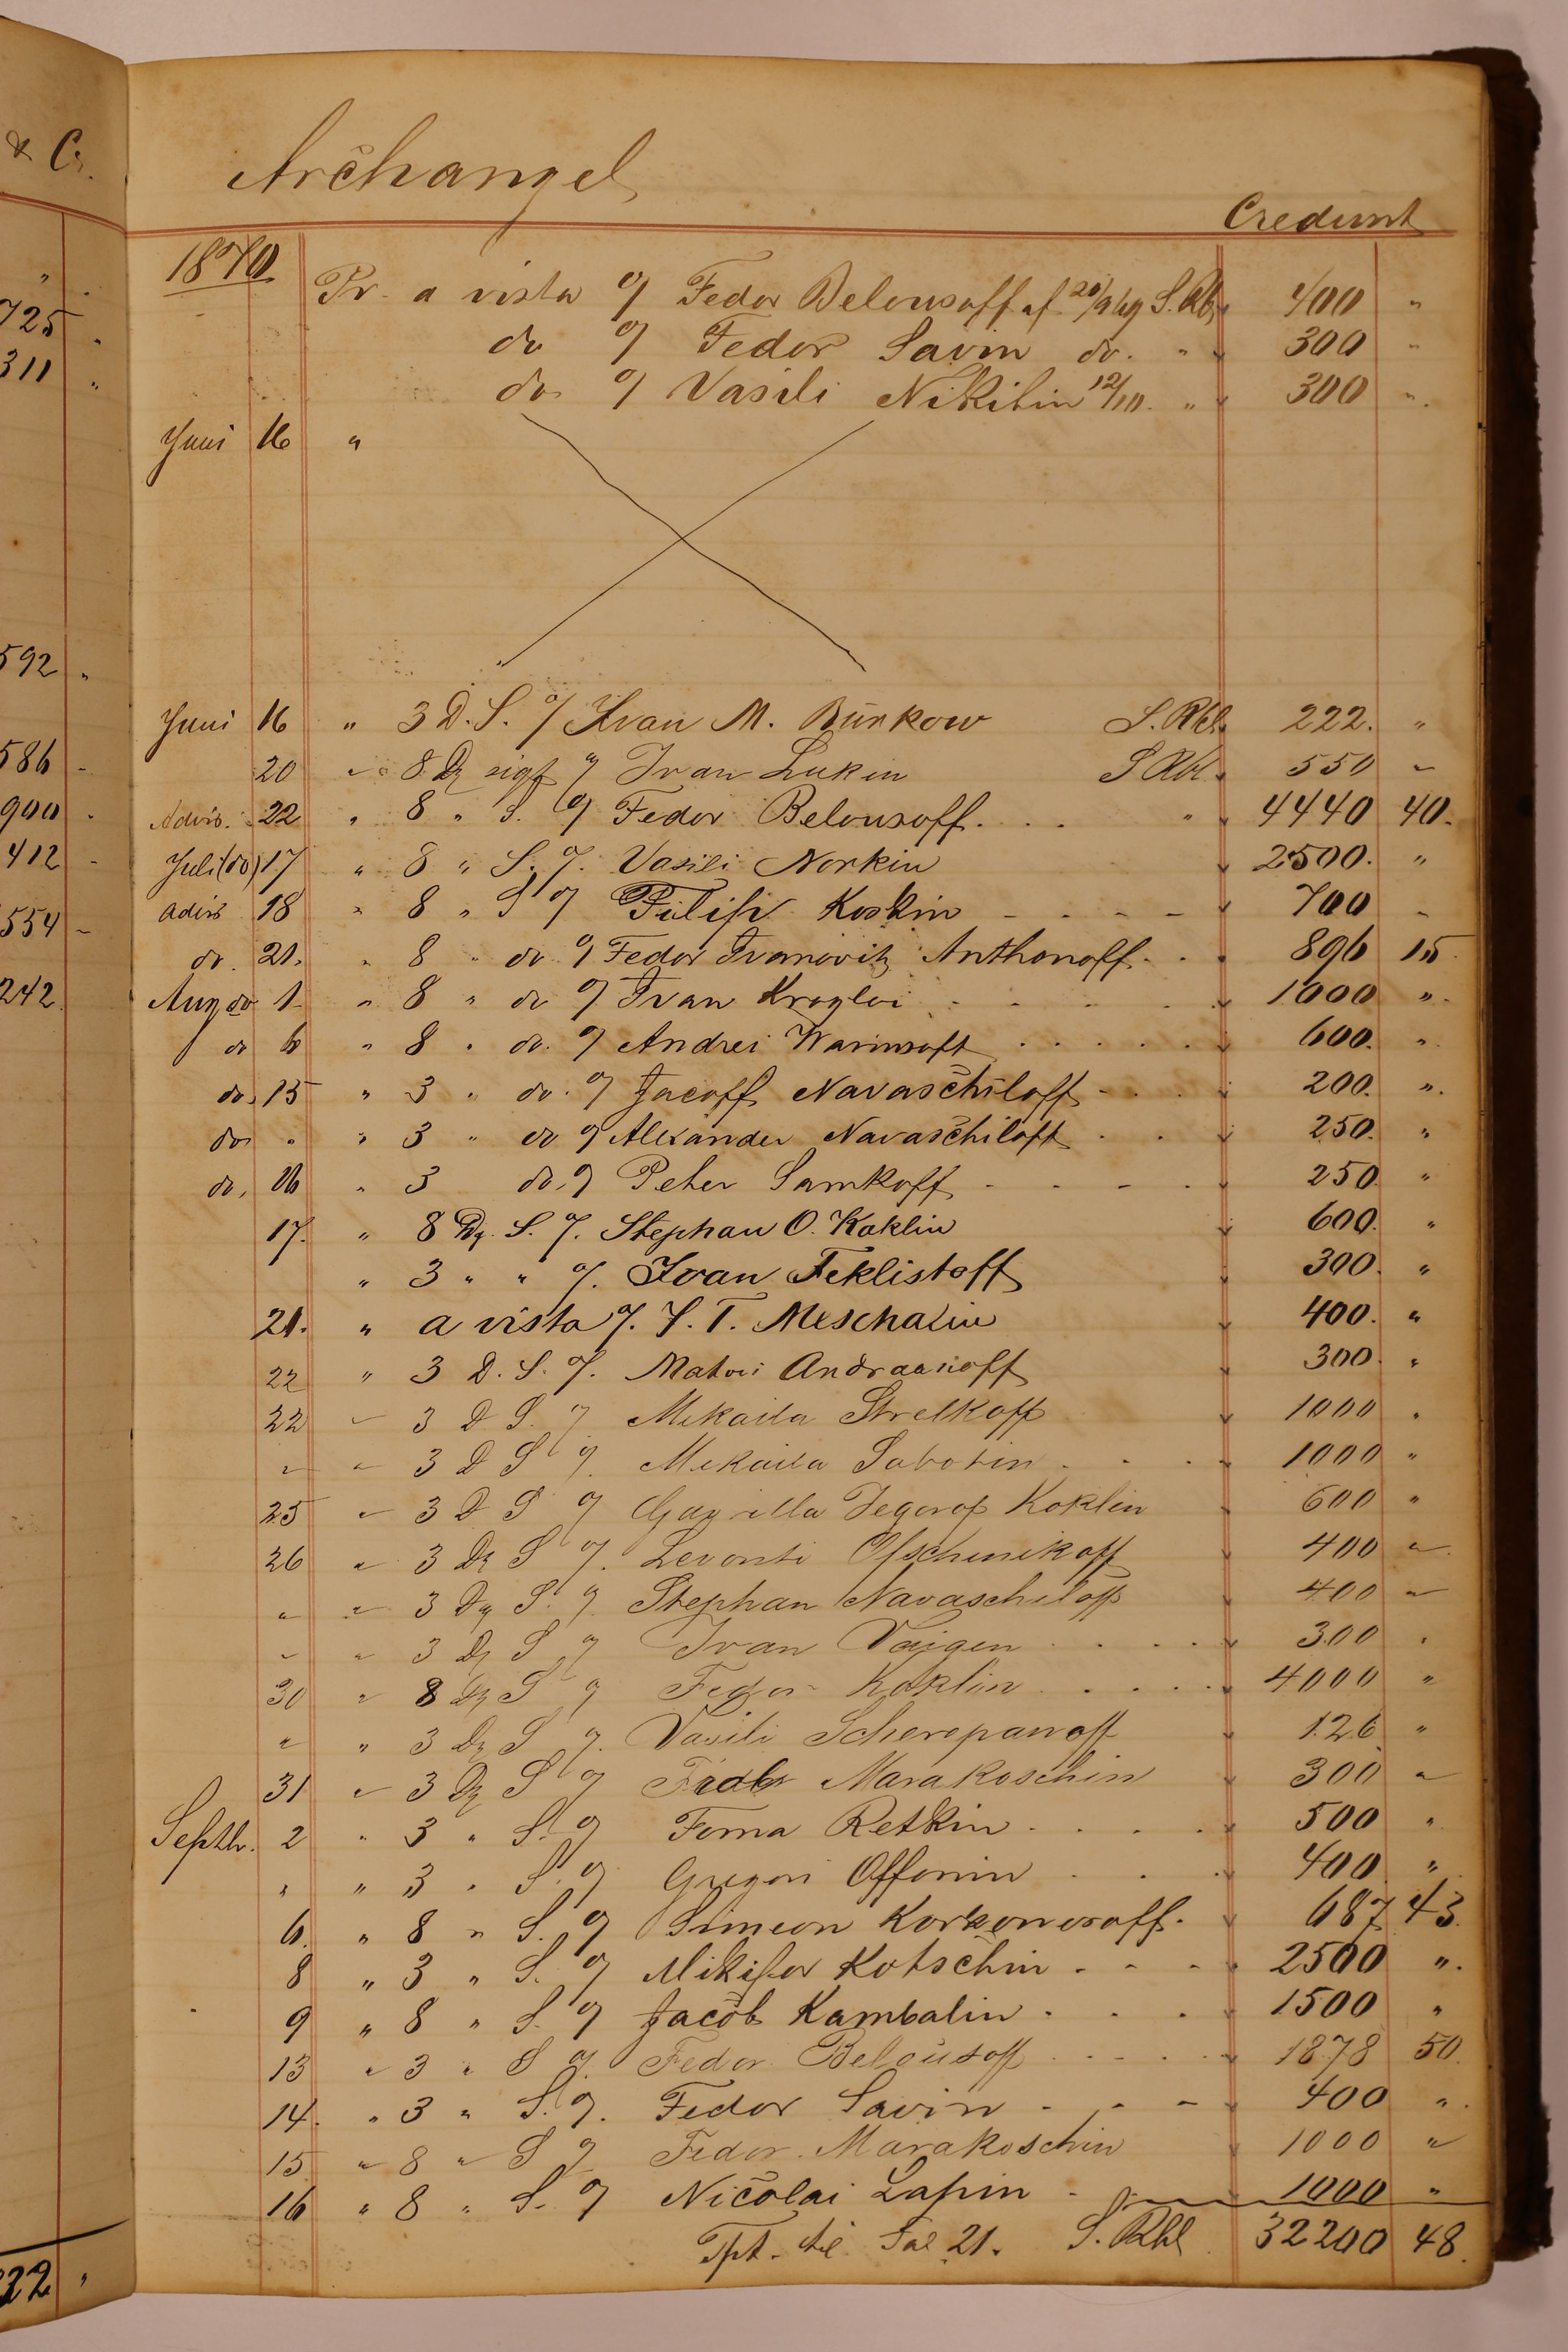 & Co.
Archangel
Credunt
1870
Pr. a vista o/ Fedor Belousoff af 20/9 69 S.Rb. 400 "
do o/ Fedor Savin do. " 300 "
do o/ Vasili Nikitin 12/10. " 300 "
Juni 16 "
Juni 16 " 3 D.S. o/ Ivan M. Burkow S.Rbl. 222. "
20 " 8 Dg sigt o/ Ivan Lukin S Rbl. 550 "
Advis. 22 " 8 " S. o/ Fedor Belousoff. 4440 40.
Juli (do) 17 " 8 " S. o/. Vasili Norkin 2500. "
advis 18 " 8 " S o/ Filip Koskin 700 "
do. 21. " 8 " do o/ Fedor Ivanovitz Anthonoff. 896 15.
Aug do 1 " 8 " do o/ Ivan Krogloi 1000 "
do 6 " 8 " do. o/ Andrei Warinsoff 600. "
do. 15 " 3 " do. o/ Jacoff Navaschiloff 200. "
do " " 3 " do o/ Alexander Navaschiloff 250. "
do. 16 " 3 do. o/ Peter Samkoff 250. "
17. " 8 Dg. S. o/. Stephan O. Koklin 600. "
" 3 " " o/. Ivan Feklistoff 300. "
21. " a vista o/. F. T. Meschalin 400. "
22 " 3 D. S. o/. Matvei Andraanoff 300. "
22 " 3 D S. o/ Mikaila Strelkoff 1000 "
" " 3 D S o/. Mikaila Sabotin 1000 "
25 " 3 D S o/ Gavrilla Jegorof Koklin 600 "
26 " 3 Dg S o/. Levonti Ofschinikoff 400 "
" " 3 Dg S. o/. Stephan Navaschiloff 400 "
" " 3 Dg S o/ Ivan Vaigen 300 "
30 " 8 Dg S o/ Fedor Koklin 4000 "
" " 3 Dg S o/. Vasili Scherepanoff 126 "
31 " 3 Dg S o/ Fedor Marakoschin 300 "
Septbr. 2 " 3 " S. o/ Foma Retkin 500 "
" " 3 " S. o/ Gregori Offonin 400 "
6. " 8 " S. o/ Simeon Korkonosoff. 687 43.
8 " 3 " S. o/ Mikifor Kotschin 2500 "
9 " 8 " S. o/ Jacob Kambalin 1500 "
13 " 3 " S o/. Fedor Belousoff 1878 50.
14. " 3 " S. o/. Fedor Savin 400 "
15 " 8 " S o/ Fedor Marakoschin 1000 "
16 " 8 " S. o/ Nicolai Lapin 1000 "
Tpt. til Fol 21. S. Rbl 32200 48.
725 "
311 "
592 "
586 "
900 "
412 "
554 "
242